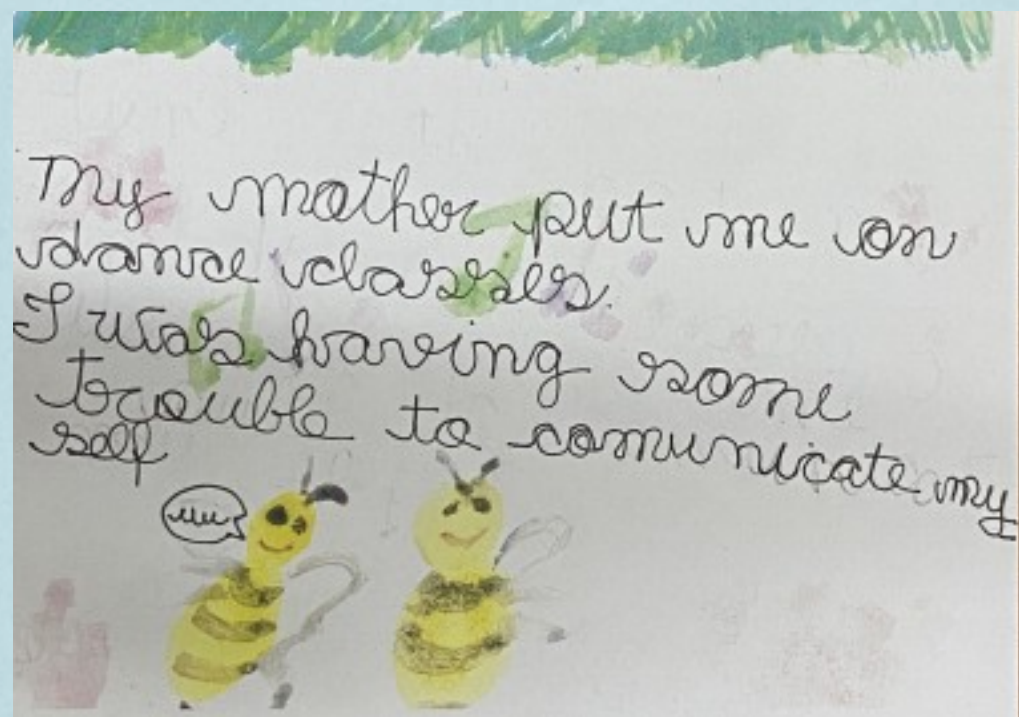 My mother put me on
dance classes.
I was having some
trouble to comunicate my
self